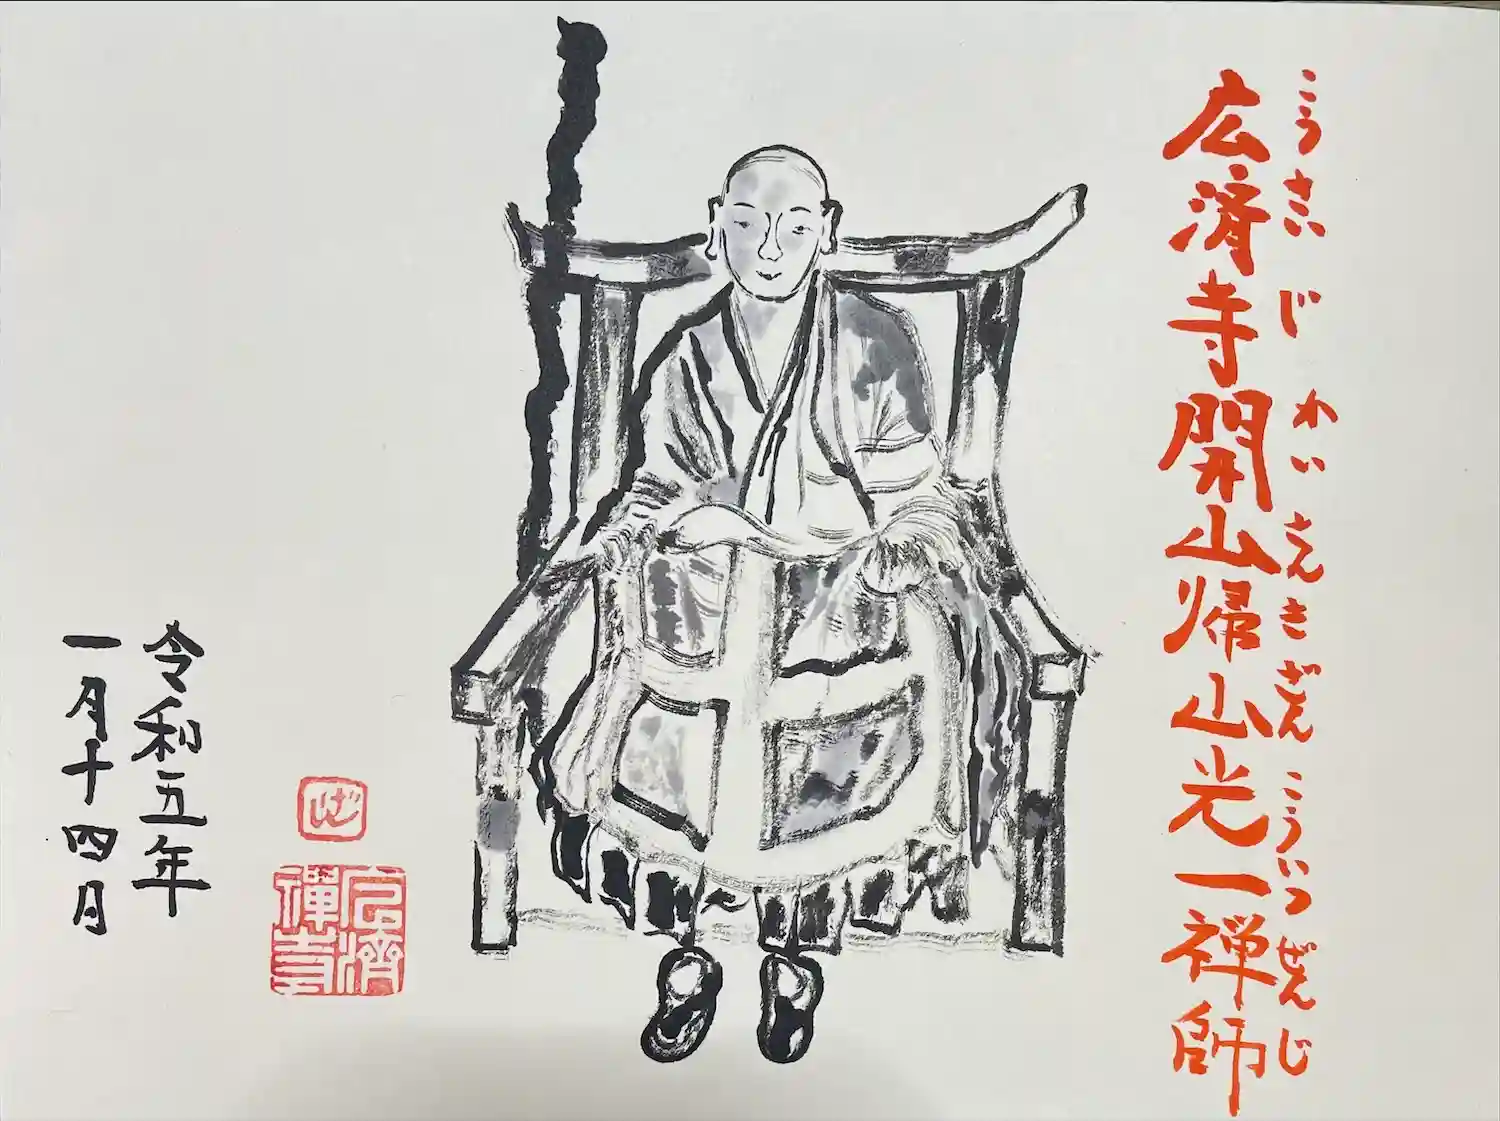 こうさいじ かいさんきざんこういつぜんじ
広済寺開山帰山光一禅師
令和五年
一月十四月
広濟
禪寺